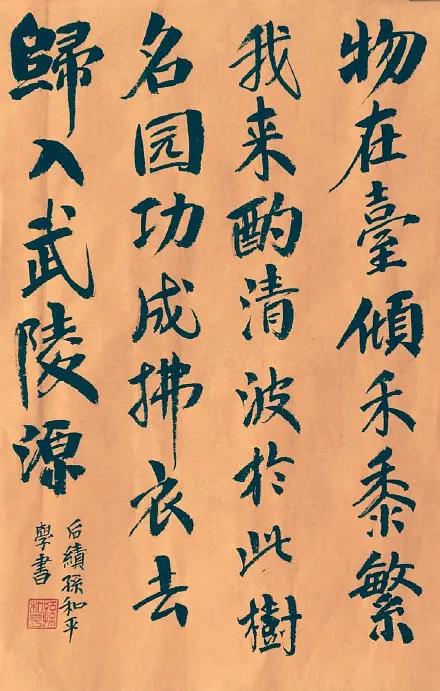 物在臺傾禾黍繁
我来酌清波於此樹
名园功成拂衣去
歸入武陵源
后績孫和平
學書